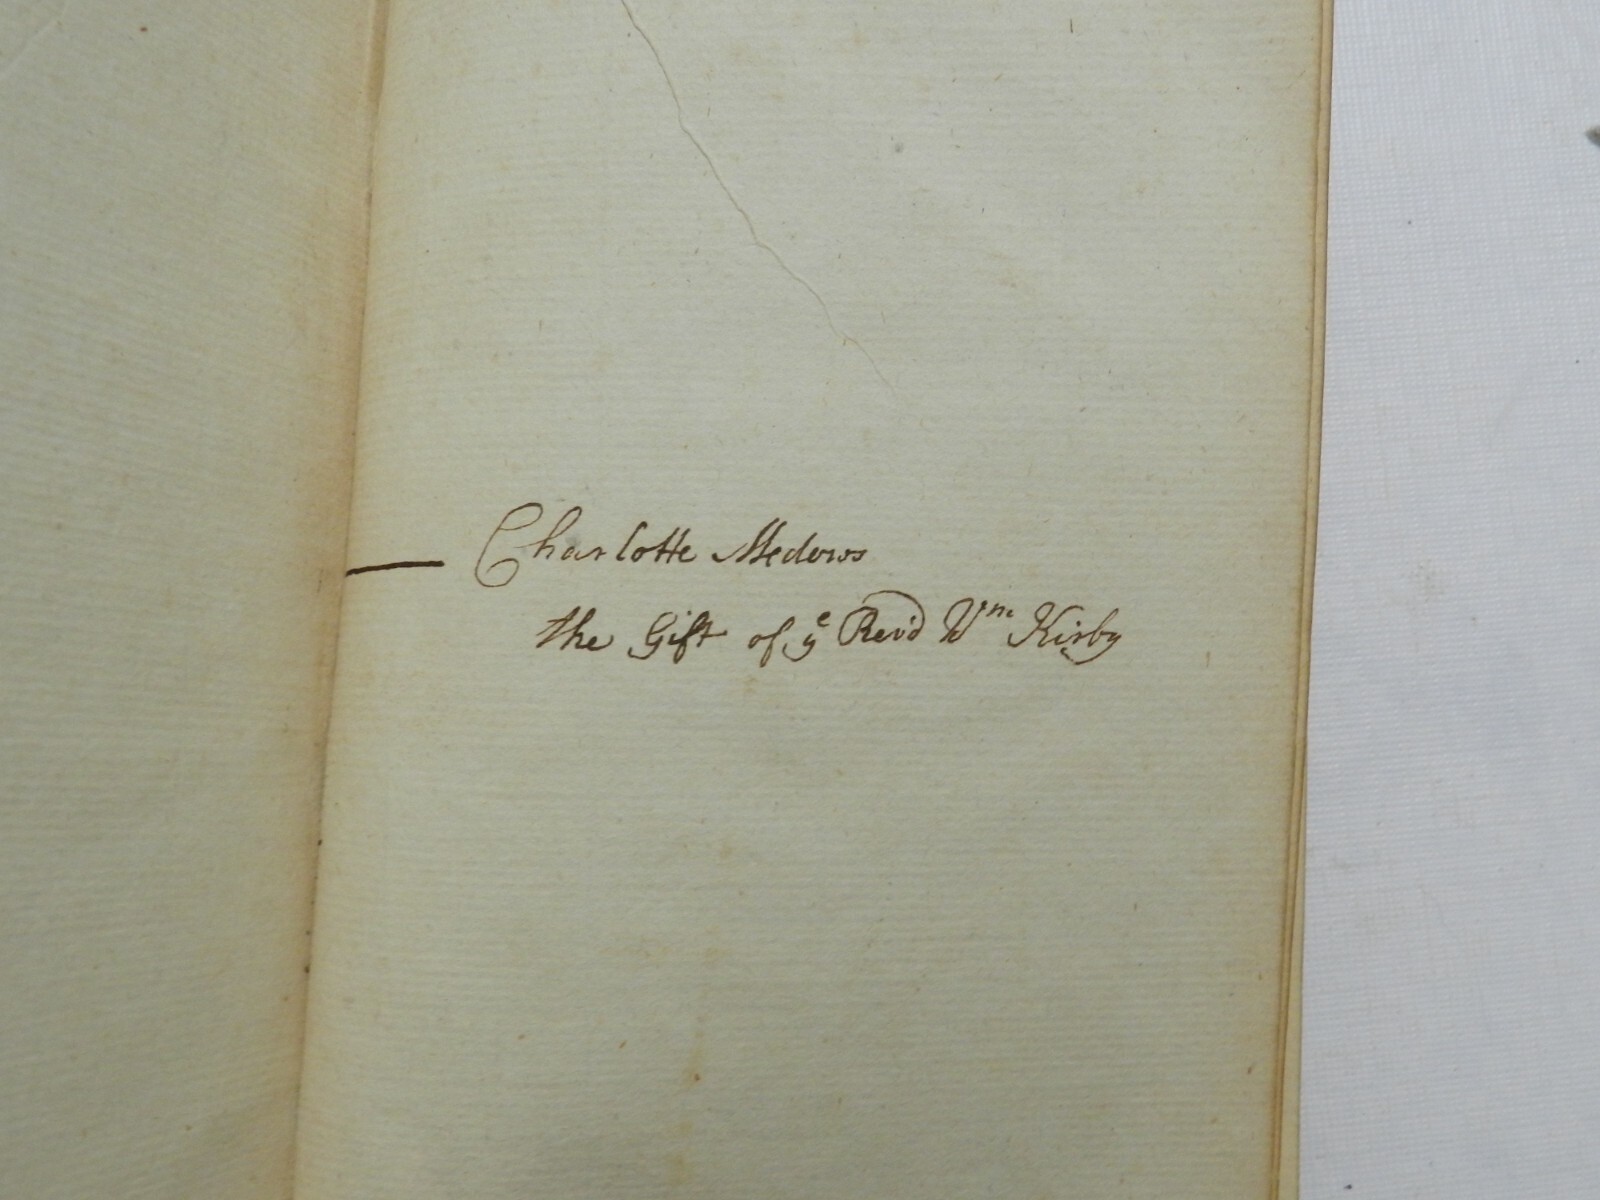 Charlotte Medows
the Gift of ye Rev'd Wm Kirby